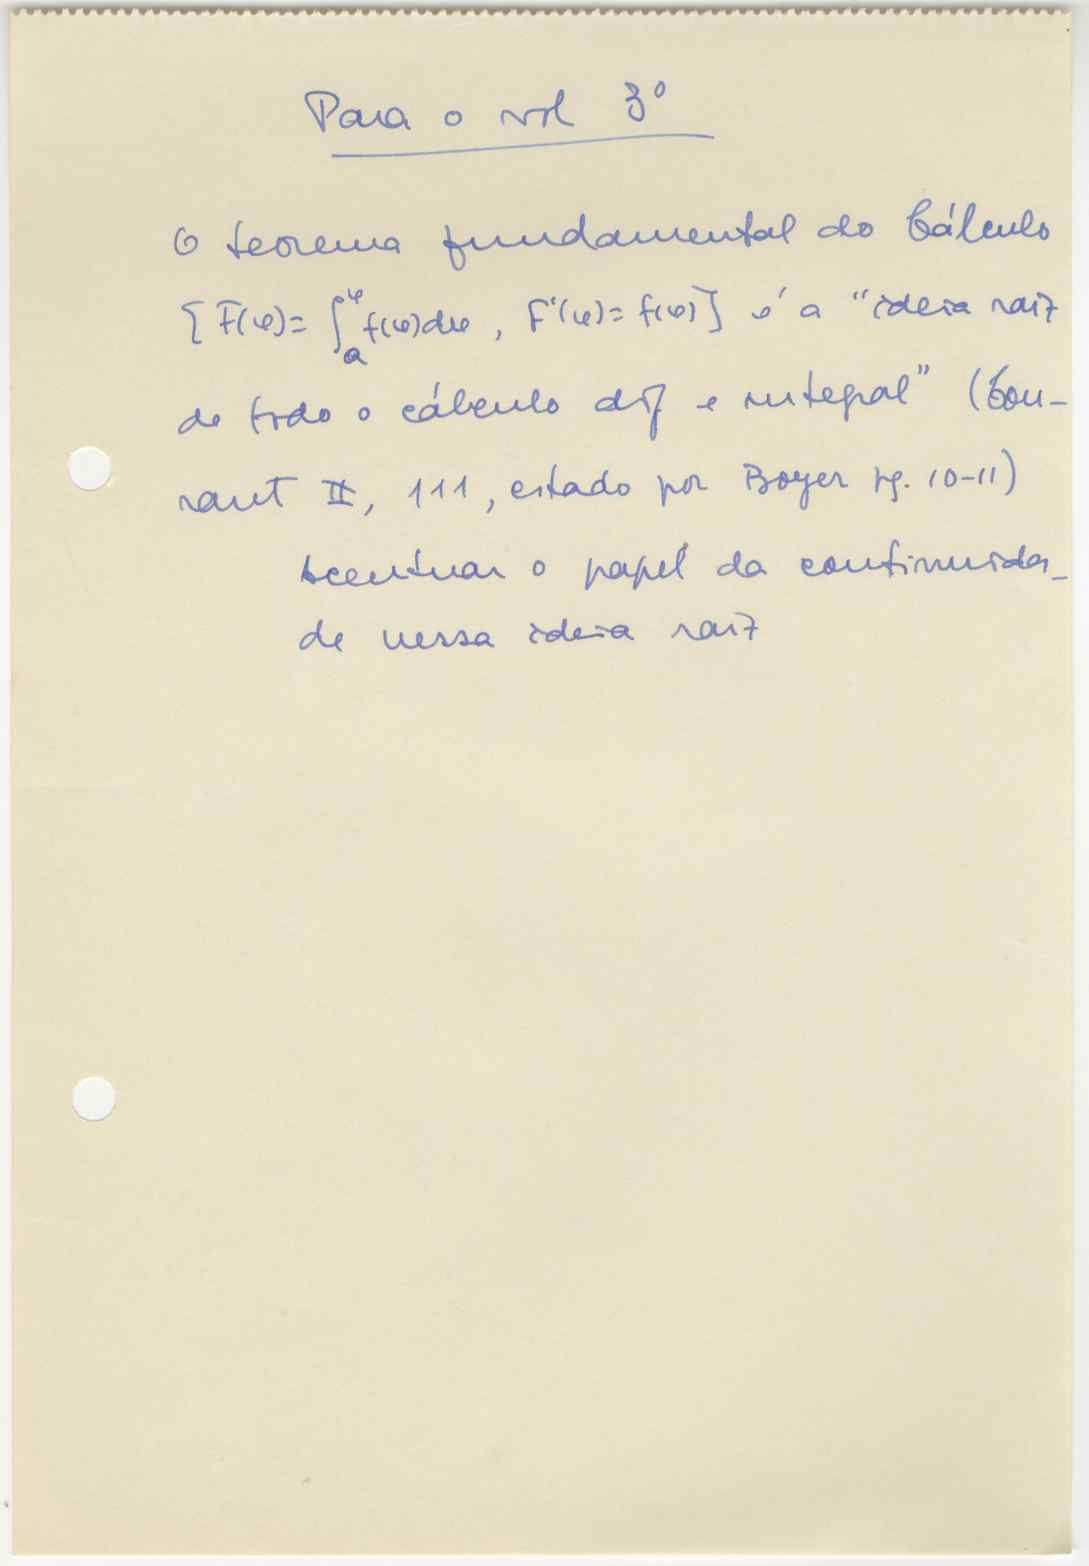 Para o vol 3º
O teorema fundamental do Cálculo
[F(x)= ∫ₐˣ f(x)dx, F'(x)= f(x)] é a "ideia raiz
de todo o cálculo dif e integral" (Cou-
rant II, 111, citado por Boyer pg. 10-11)
Acentuar o papel da continuida-
de nessa ideia raiz